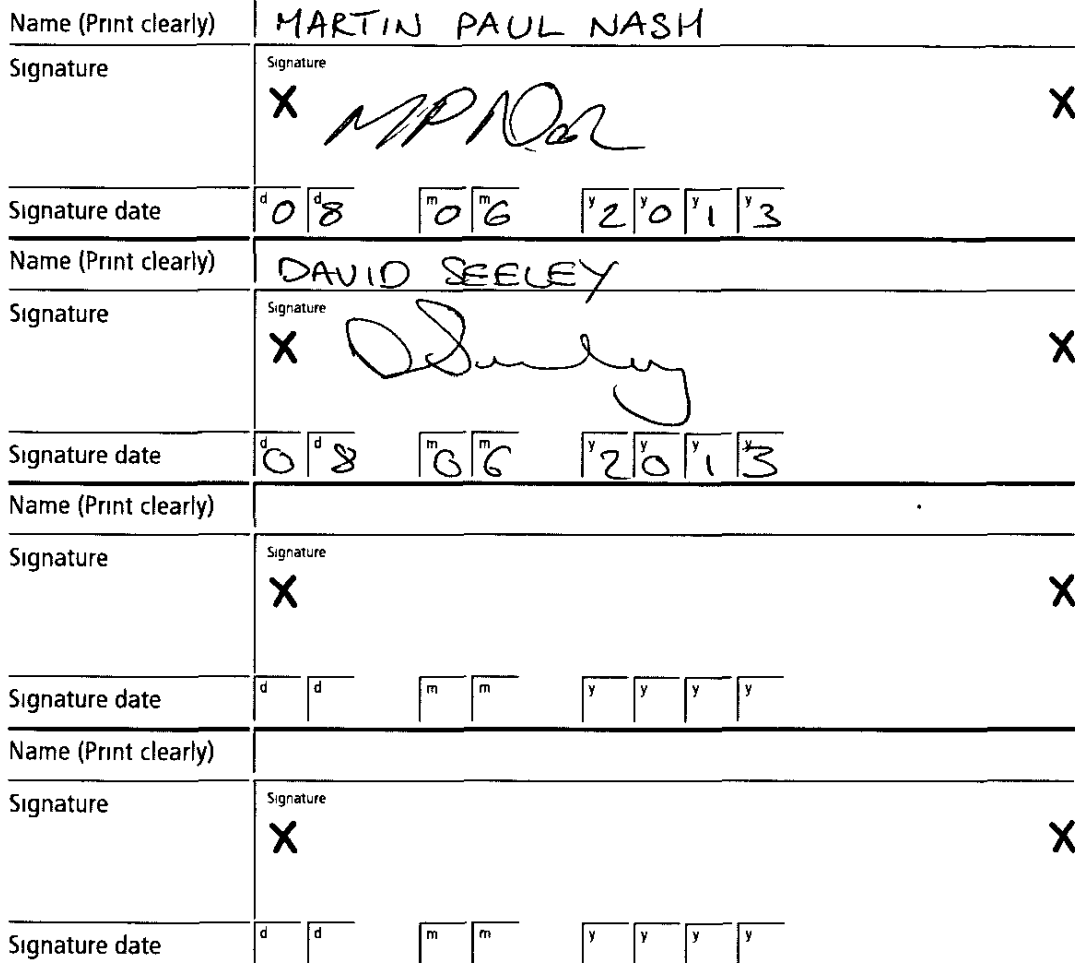 Name (Print clearly) MARTIN PAUL NASH
Signature Signature
X MPNash X
Signature date d0 d8 m0 m6 y2 y0 y1 y3
Name (Print clearly) DAVID SEELEY
Signature Signature
X DSeeley X
Signature date d0 d8 m0 m6 y2 y0 y1 y3
Name (Print clearly)
Signature Signature
X X
Signature date d d m m y y y y
Name (Print clearly)
Signature Signature
X X
Signature date d d m m y y y y